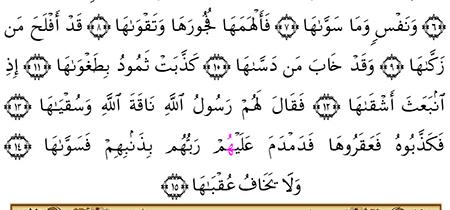 ﴿٦﴾ وَنَفْسٍ وَمَا سَوَّىٰهَا ﴿٧﴾ فَأَلْهَمَهَا فُجُورَهَا وَتَقْوَىٰهَا ﴿٨﴾ قَدْ أَفْلَحَ مَن
زَكَّىٰهَا ﴿٩﴾ وَقَدْ خَابَ مَن دَسَّىٰهَا ﴿١٠﴾ كَذَّبَتْ ثَمُودُ بِطَغْوَىٰهَا ﴿١١﴾ إِذِ
ٱنۢبَعَثَ أَشْقَىٰهَا ﴿١٢﴾ فَقَالَ لَهُمْ رَسُولُ ٱللَّهِ نَاقَةَ ٱللَّهِ وَسُقْيَـٰهَا ﴿١٣﴾
فَكَذَّبُوهُ فَعَقَرُوهَا فَدَمْدَمَ عَلَيْهِمْ رَبُّهُم بِذَنۢبِهِمْ فَسَوَّىٰهَا ﴿١٤﴾
وَلَا يَخَافُ عُقْبَـٰهَا ﴿١٥﴾